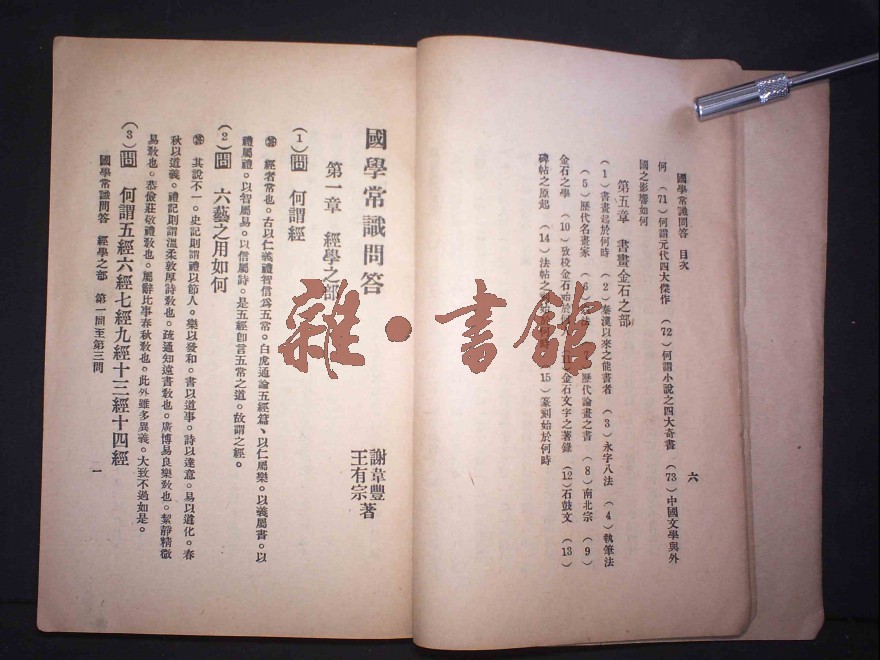 國學常識問答 目次
六
何 (71)何謂元代四大傑作 (72)何謂小說之四大奇書 (73)中國文學與外
國之影響如何
第五章 書畫金石之部
(1)書畫起於何時 (2)秦漢以來之能書者 (3)永字八法 (4)執筆法
(5)歷代名畫家 (6) 法 歷代論畫之書 (8)南北宗 (9)
金石之學 (10)攷校金石始於何 金石文字之著錄 (12)石鼓文 (13)
碑帖之原起 (14)法帖之 始 15)篆刻始於何時
國學常識問答
謝葦豐
王有宗 著
第一章 經學之部
(1)問 何謂經
答 經者常也。古以仁義禮智信爲五常。白虎通論五經篇、以仁屬樂。以義屬書。以
禮屬禮。以智屬易。以信屬詩。是五經卽言五常之道。故謂之經。
(2)問 六藝之用如何
答 其說不一。史記則謂禮以節人。樂以發和。書以道事。詩以達意。易以道化。春
秋以道義。禮記則謂溫柔敦厚詩敎也。疏通知遠書敎也。廣博易良樂敎也。絜靜精微
易敎也。恭儉莊敬禮敎也。屬辭比事春秋敎也。此外雖多異義。大致不過如是。
(3)問 何謂五經六經七經九經十三經十四經
國學常識問答 經學之部 第一問至第三問
一
雜·書館